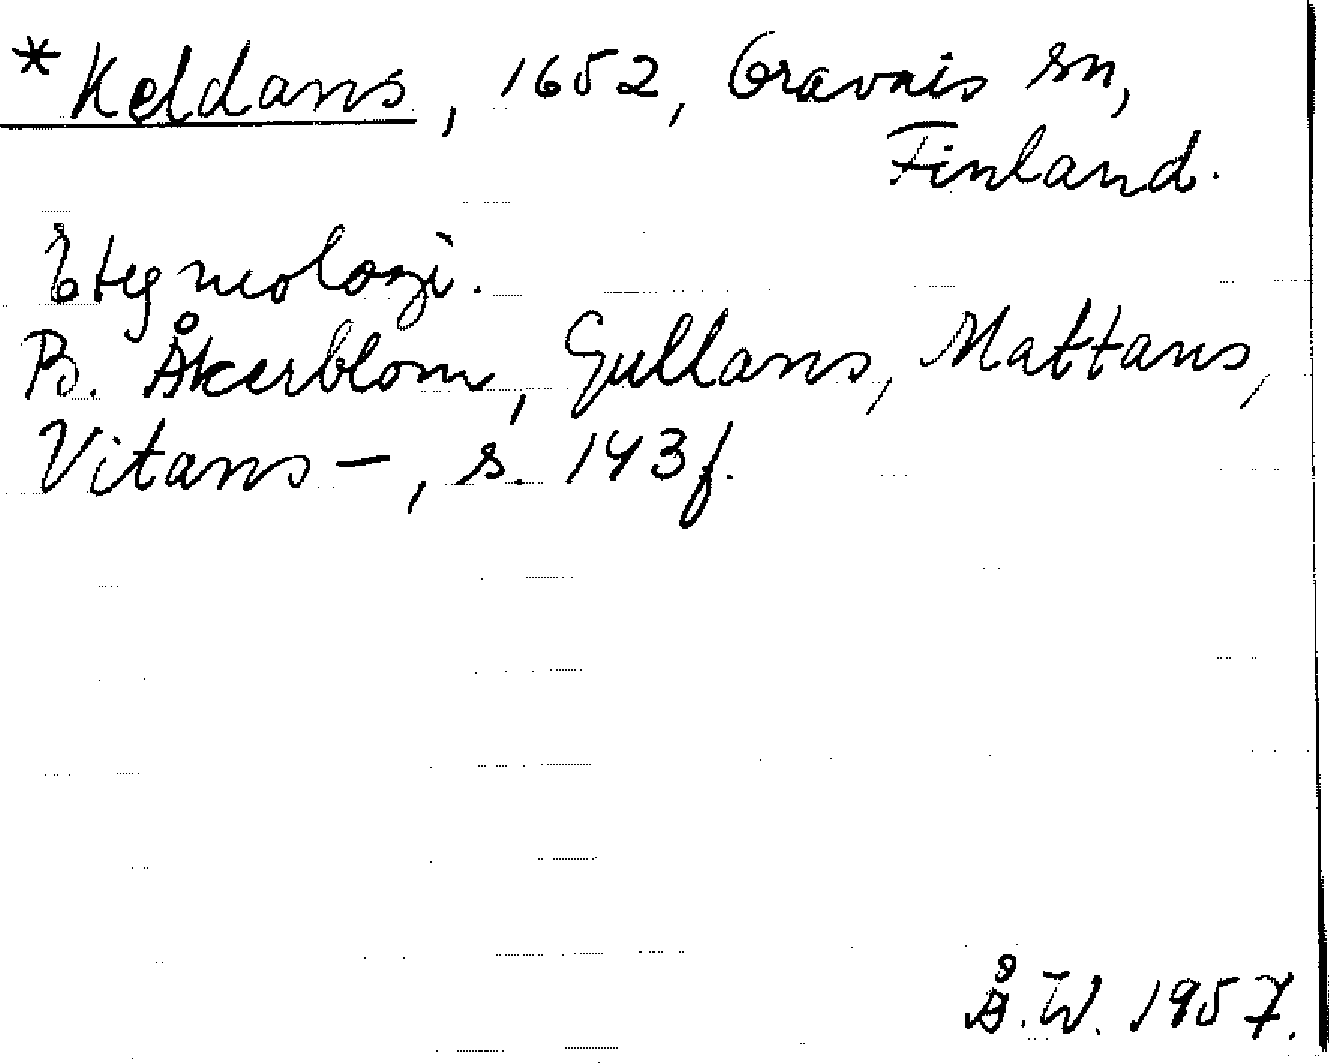 * Keldans, 1652, Oravais sn,
Finland.
Etymologi.
B. Åkerblom, Gullans, Mattans,
Vitans –, s. 143 f.
Å.W. 1957.